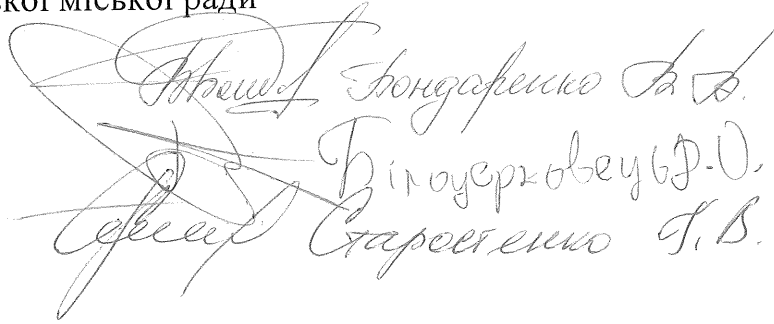 ської міської ради
Бондаренко В. В.
Білоцерковець Р.О.
Старостенко Г. В.